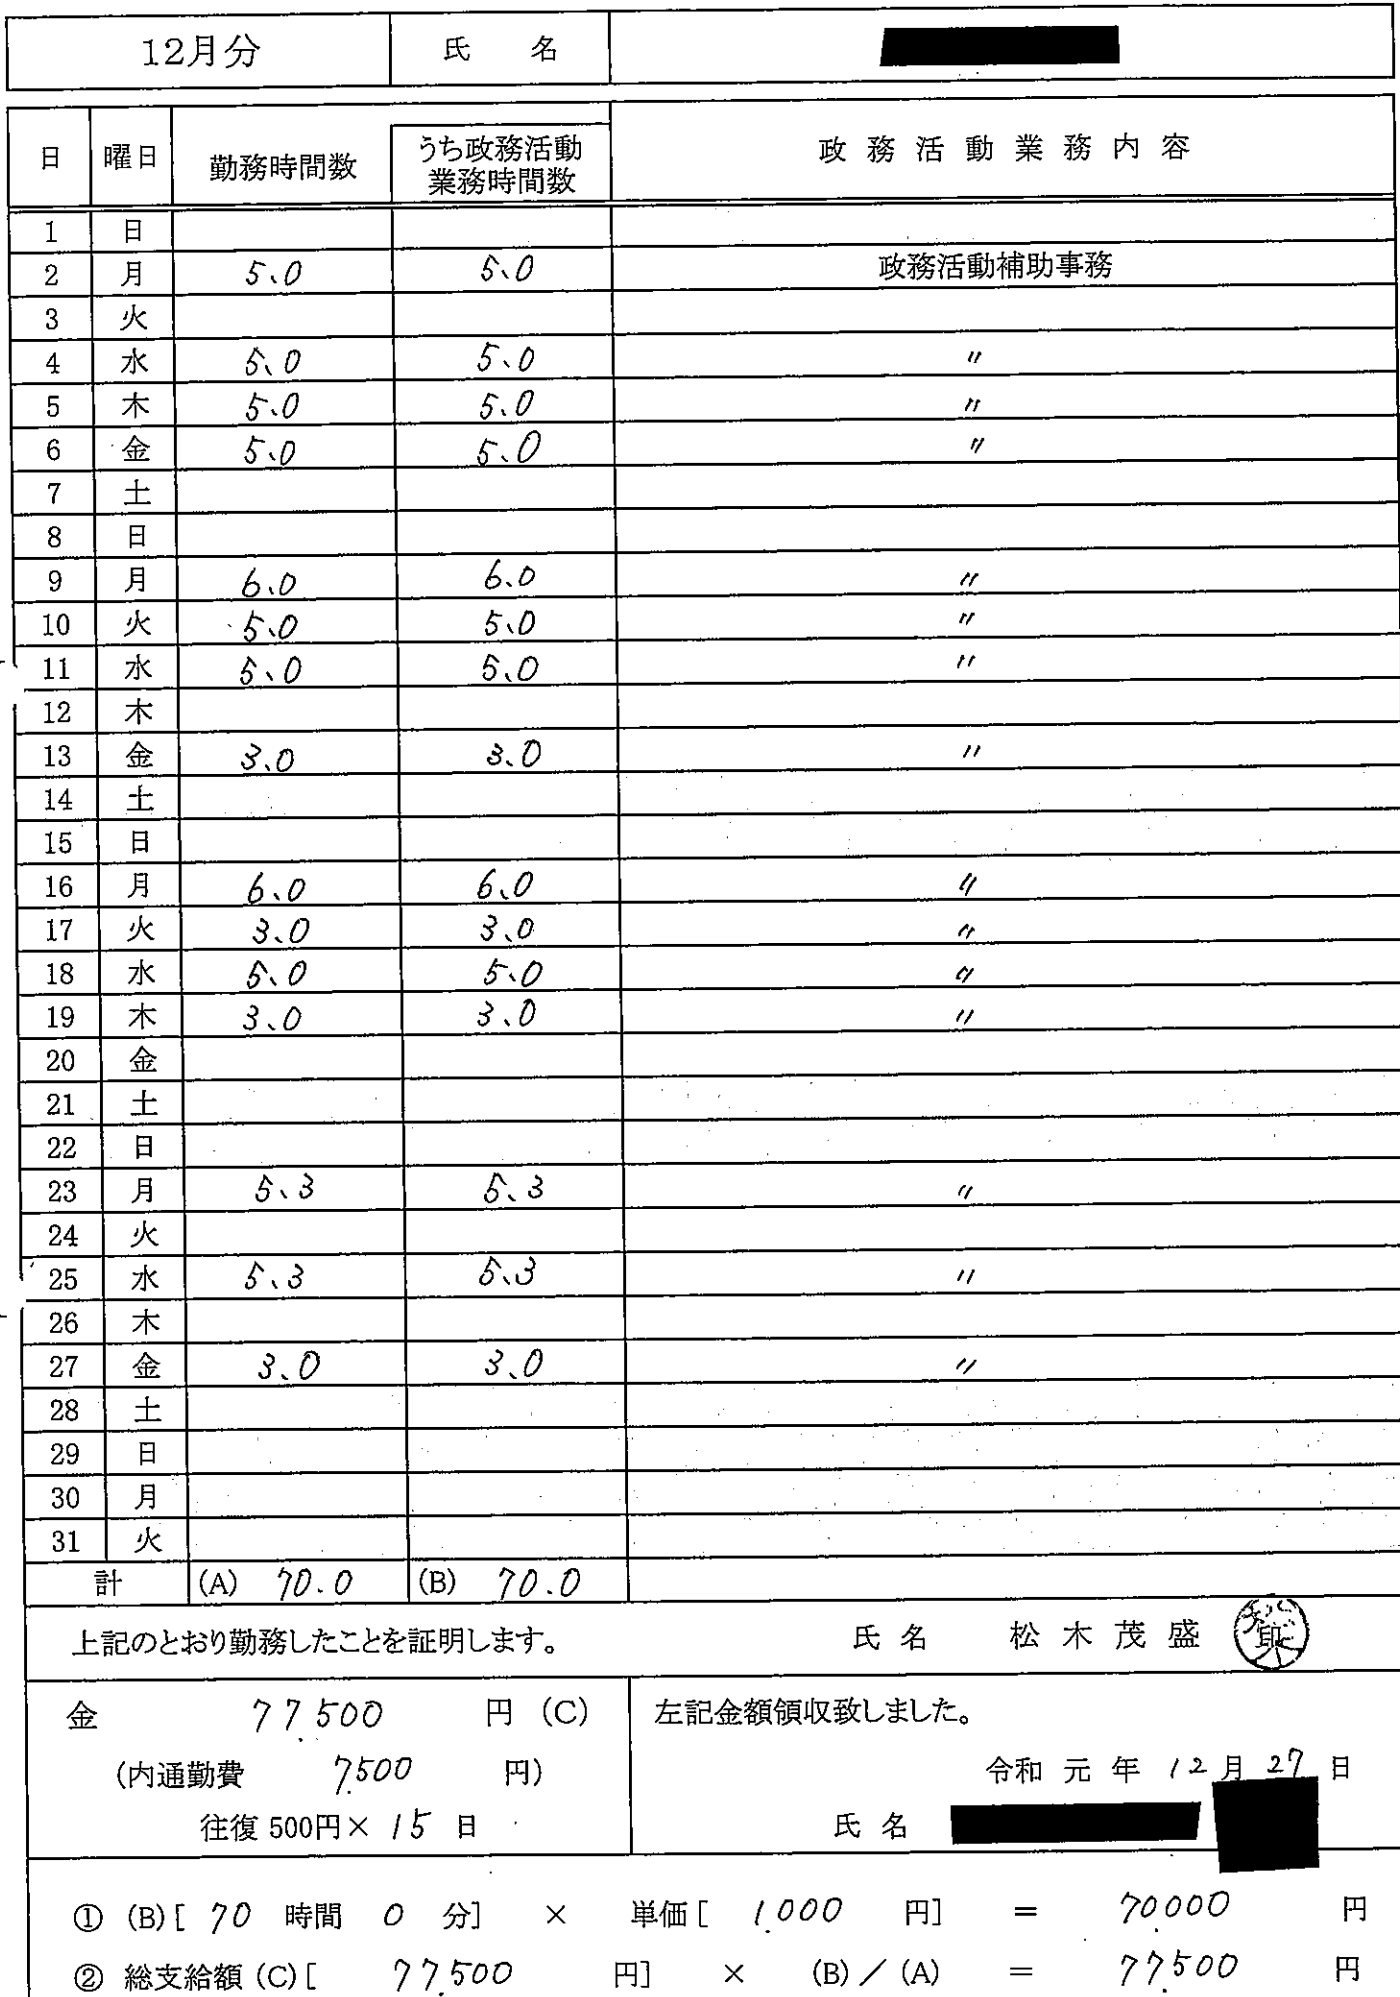 12月分 氏 名
日 曜日 勤務時間数 うち政務活動業務時間数 政務活動業務内容
1 日
2 月 5.0 5.0 政務活動補助事務
3 火
4 水 5.0 5.0 〃
5 木 5.0 5.0 〃
6 金 5.0 5.0 〃
7 土
8 日
9 月 6.0 6.0 〃
10 火 5.0 5.0 〃
11 水 5.0 5.0 〃
12 木
13 金 3.0 3.0 〃
14 土
15 日
16 月 6.0 6.0 〃
17 火 3.0 3.0 〃
18 水 5.0 5.0 〃
19 木 3.0 3.0 〃
20 金
21 土
22 日
23 月 5.3 5.3 〃
24 火
25 水 5.3 5.3 〃
26 木
27 金 3.0 3.0 〃
28 土
29 日
30 月
31 火
計 (A) 70.0 (B) 70.0
上記のとおり勤務したことを証明します。 氏名 松木茂盛
金 77,500 円 (C)
(内通勤費 7,500 円)
往復 500円× 15 日
左記金額領収致しました。
令和 元 年 12 月 27 日
氏 名
① (B)[ 70 時間 0 分] × 単価[ 1,000 円] = 70,000 円
② 総支給額 (C)[ 77,500 円] × (B)/(A) = 77,500 円